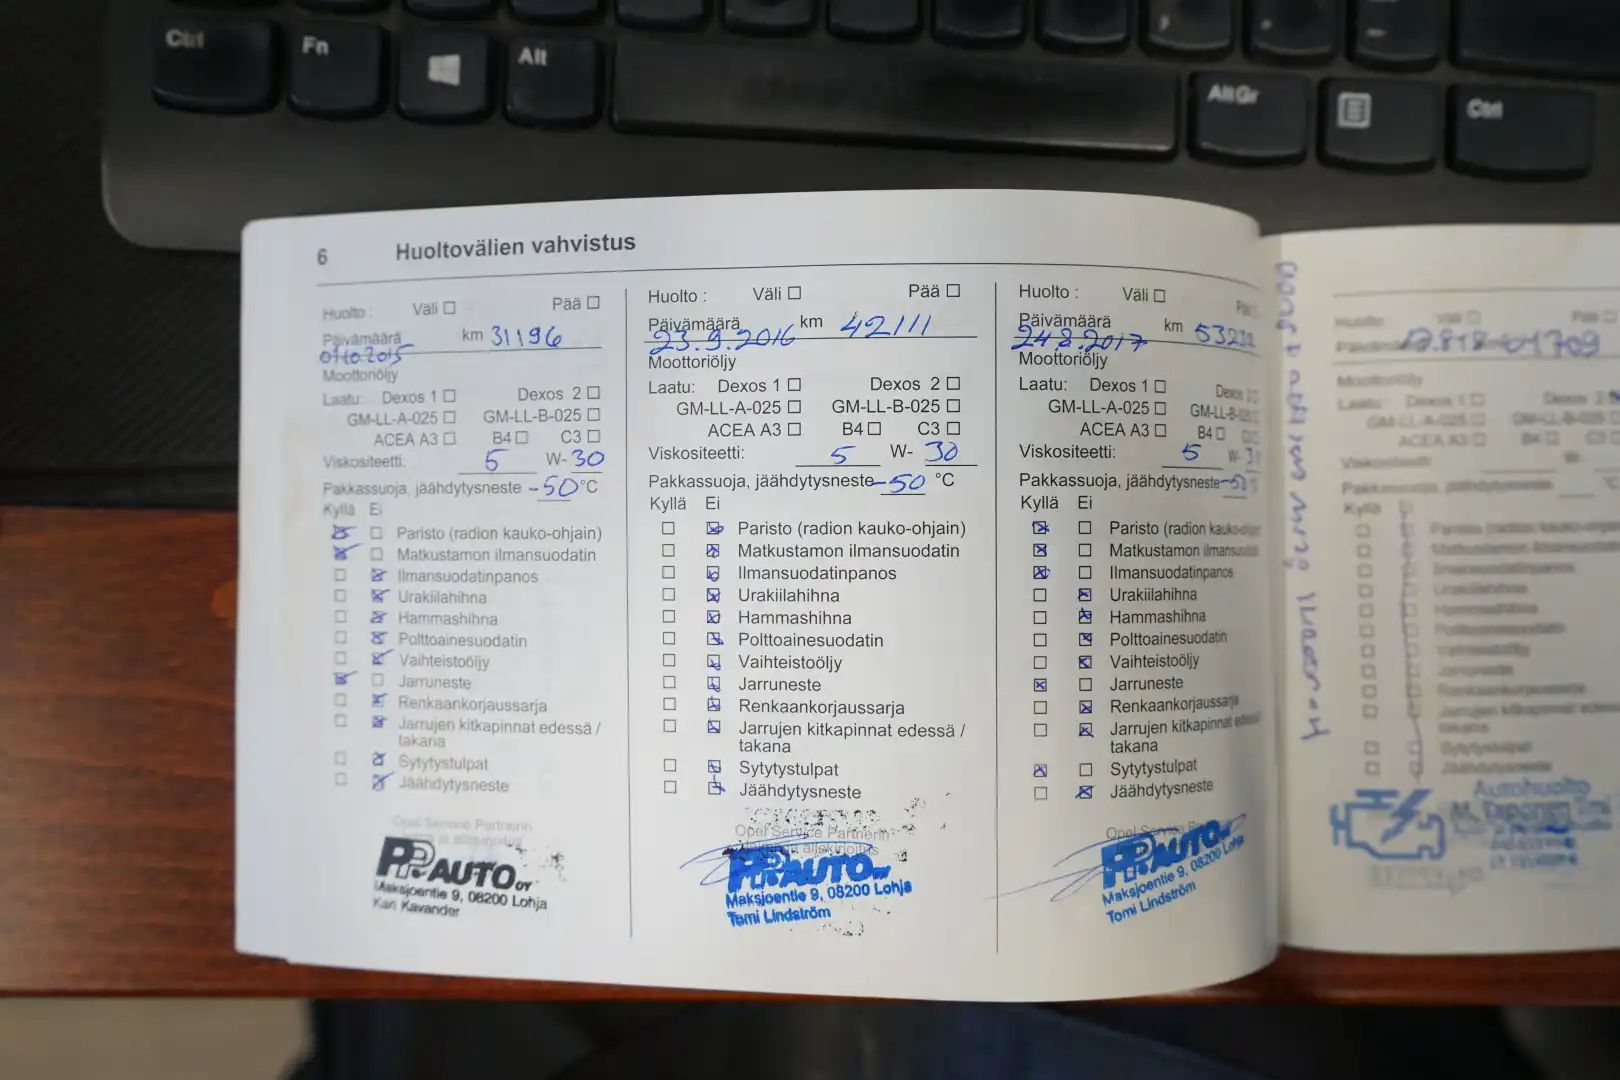 Ctrl
Fn
Alt
AltGr
Ctrl
6 Huoltovälien vahvistus
Huolto : Väli ☐ Pää ☐
Päivämäärä km 31196
01.10.2015
Moottoriöljy
Laatu: Dexos 1 ☐ Dexos 2 ☐
GM-LL-A-025 ☐ GM-LL-B-025 ☐
ACEA A3 ☐ B4 ☐ C3 ☐
Viskositeetti: 5 W- 30
Pakkassuoja, jäähdytysneste -50 °C
Kyllä Ei
Paristo (radion kauko-ohjain)
Matkustamon ilmansuodatin
Ilmansuodatinpanos
Urakiilahihna
Hammashihna
Polttoainesuodatin
Vaihteistoöljy
Jarruneste
Renkaankorjaussarja
Jarrujen kitkapinnat edessä /
takana
Sytytystulpat
Jäähdytysneste
Opel Service Partnerin
PP AUTO OY
Maksjoentie 9, 08200 Lohja
Kari Kavander
Huolto : Väli ☐ Pää ☐
Päivämäärä km 42111
23.9.2016
Moottoriöljy
Laatu: Dexos 1 ☐ Dexos 2 ☐
GM-LL-A-025 ☐ GM-LL-B-025 ☐
ACEA A3 ☐ B4 ☐ C3 ☐
Viskositeetti: 5 W- 30
Pakkassuoja, jäähdytysneste -50 °C
Kyllä Ei
Paristo (radion kauko-ohjain)
Matkustamon ilmansuodatin
Ilmansuodatinpanos
Urakiilahihna
Hammashihna
Polttoainesuodatin
Vaihteistoöljy
Jarruneste
Renkaankorjaussarja
Jarrujen kitkapinnat edessä /
takana
Sytytystulpat
Jäähdytysneste
Opel Service Partnerin
PP AUTO OY
Maksjoentie 9, 08200 Lohja
Tomi Lindström
Huolto : Väli ☐
Päivämäärä km
24.8.2017
Moottoriöljy
Laatu: Dexos 1 ☐ Dexos 2
GM-LL-A-025 ☐ GM-LL-B-025
ACEA A3 ☐ B4 ☐
Viskositeetti: 5 W-
Pakkassuoja, jäähdytysneste
Kyllä Ei
Paristo (radion kauko-ohjain
Matkustamon ilmansuodatin
Ilmansuodatinpanos
Urakiilahihna
Hammashihna
Polttoainesuodatin
Vaihteistoöljy
Jarruneste
Renkaankorjaussarja
Jarrujen kitkapinnat edessä
takana
Sytytystulpat
Jäähdytysneste
Opel Service Partnerin
PP AUTO
Maksjoentie 9, 08200 Lohja
Tomi Lindström
Huolto: Väli ☐ Pää ☐
Moottoriöljy
Laatu: Dexos 1 ☐ Dexos 2
GM-LL-A-025 ☐
ACEA A3 ☐ B4 ☐ C3
Viskositeetti:
Pakkassuoja, jäähdytysneste °C
Kyllä
Paristo (radion kauko-ohjain
Ilmansuodatinpanos
Urakiilahihna
Hammashihna
Polttoainesuodatin
Vaihteistoöljy
Jarruneste
Renkaankorjaussarja
Jarrujen kitkapinnat
takana
Sytytystulpat
Jäähdytysneste
Autohuolto